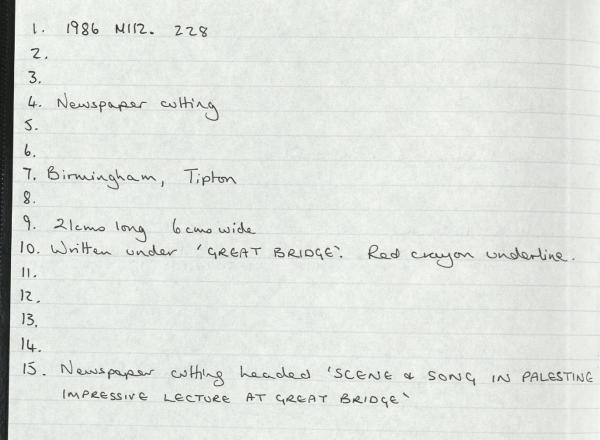 1. 1986 M112. 228
2.
3.
4. Newspaper cutting
5.
6.
7. Birmingham, Tipton
8.
9. 21cms long 6cms wide
10. Written under 'GREAT BRIDGE'. Red crayon underline.
11.
12.
13.
14.
15. Newspaper cutting headed 'SCENE & SONG IN PALESTINE
IMPRESSIVE LECTURE AT GREAT BRIDGE'